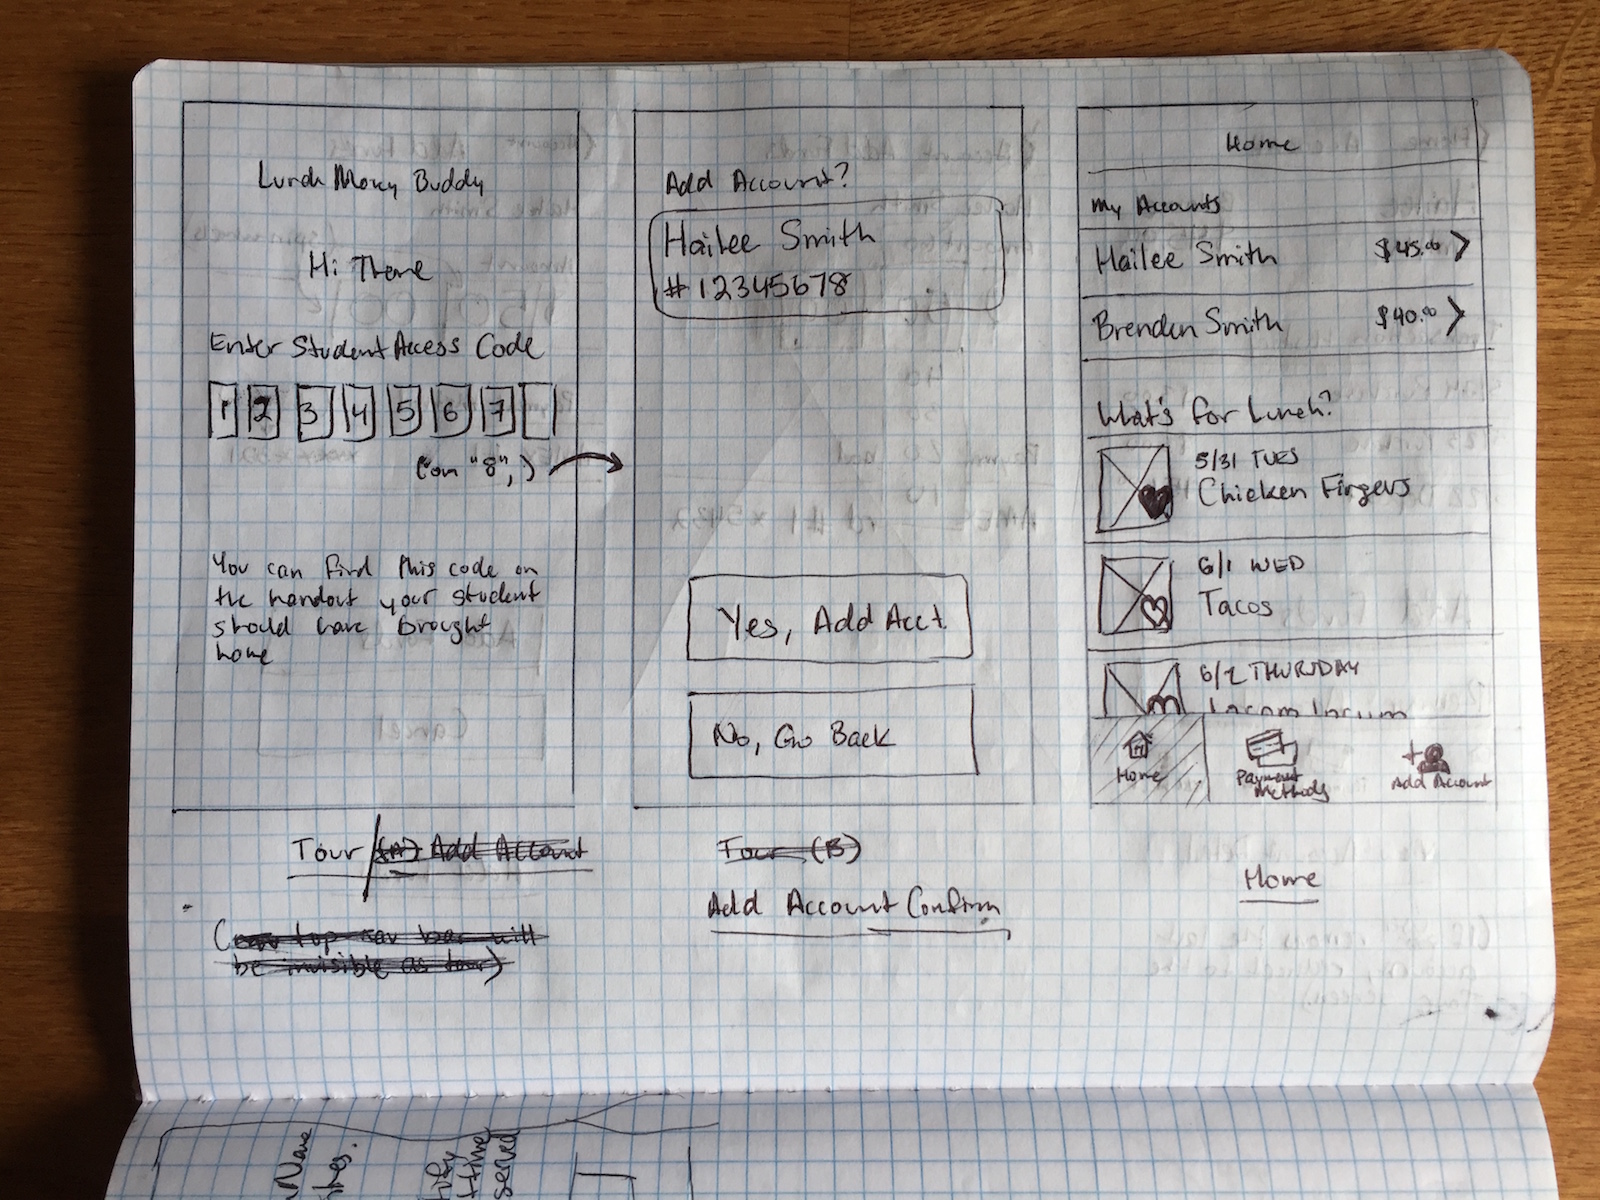 Lunch Money Buddy
Hi There
Enter Student Access Code
1 2 3 4 5 6 7
(on "8",)
You can find this code on
the handout your student
should have brought
home
Tour (A) Add Account
(top nav bar will
be invisible as tour)
Add Account?
Hailee Smith
#12345678
Yes, Add Acct.
No, Go Back
Tour (B)
Add Account Confirm
Home
My Accounts
Hailee Smith $45.00 >
Brenden Smith $40.00 >
What's for Lunch?
5/31 TUES
Chicken Fingers
6/1 WED
Tacos
6/2 THURSDAY
Home
Payment
Methods
Add Account
Home
Name
served